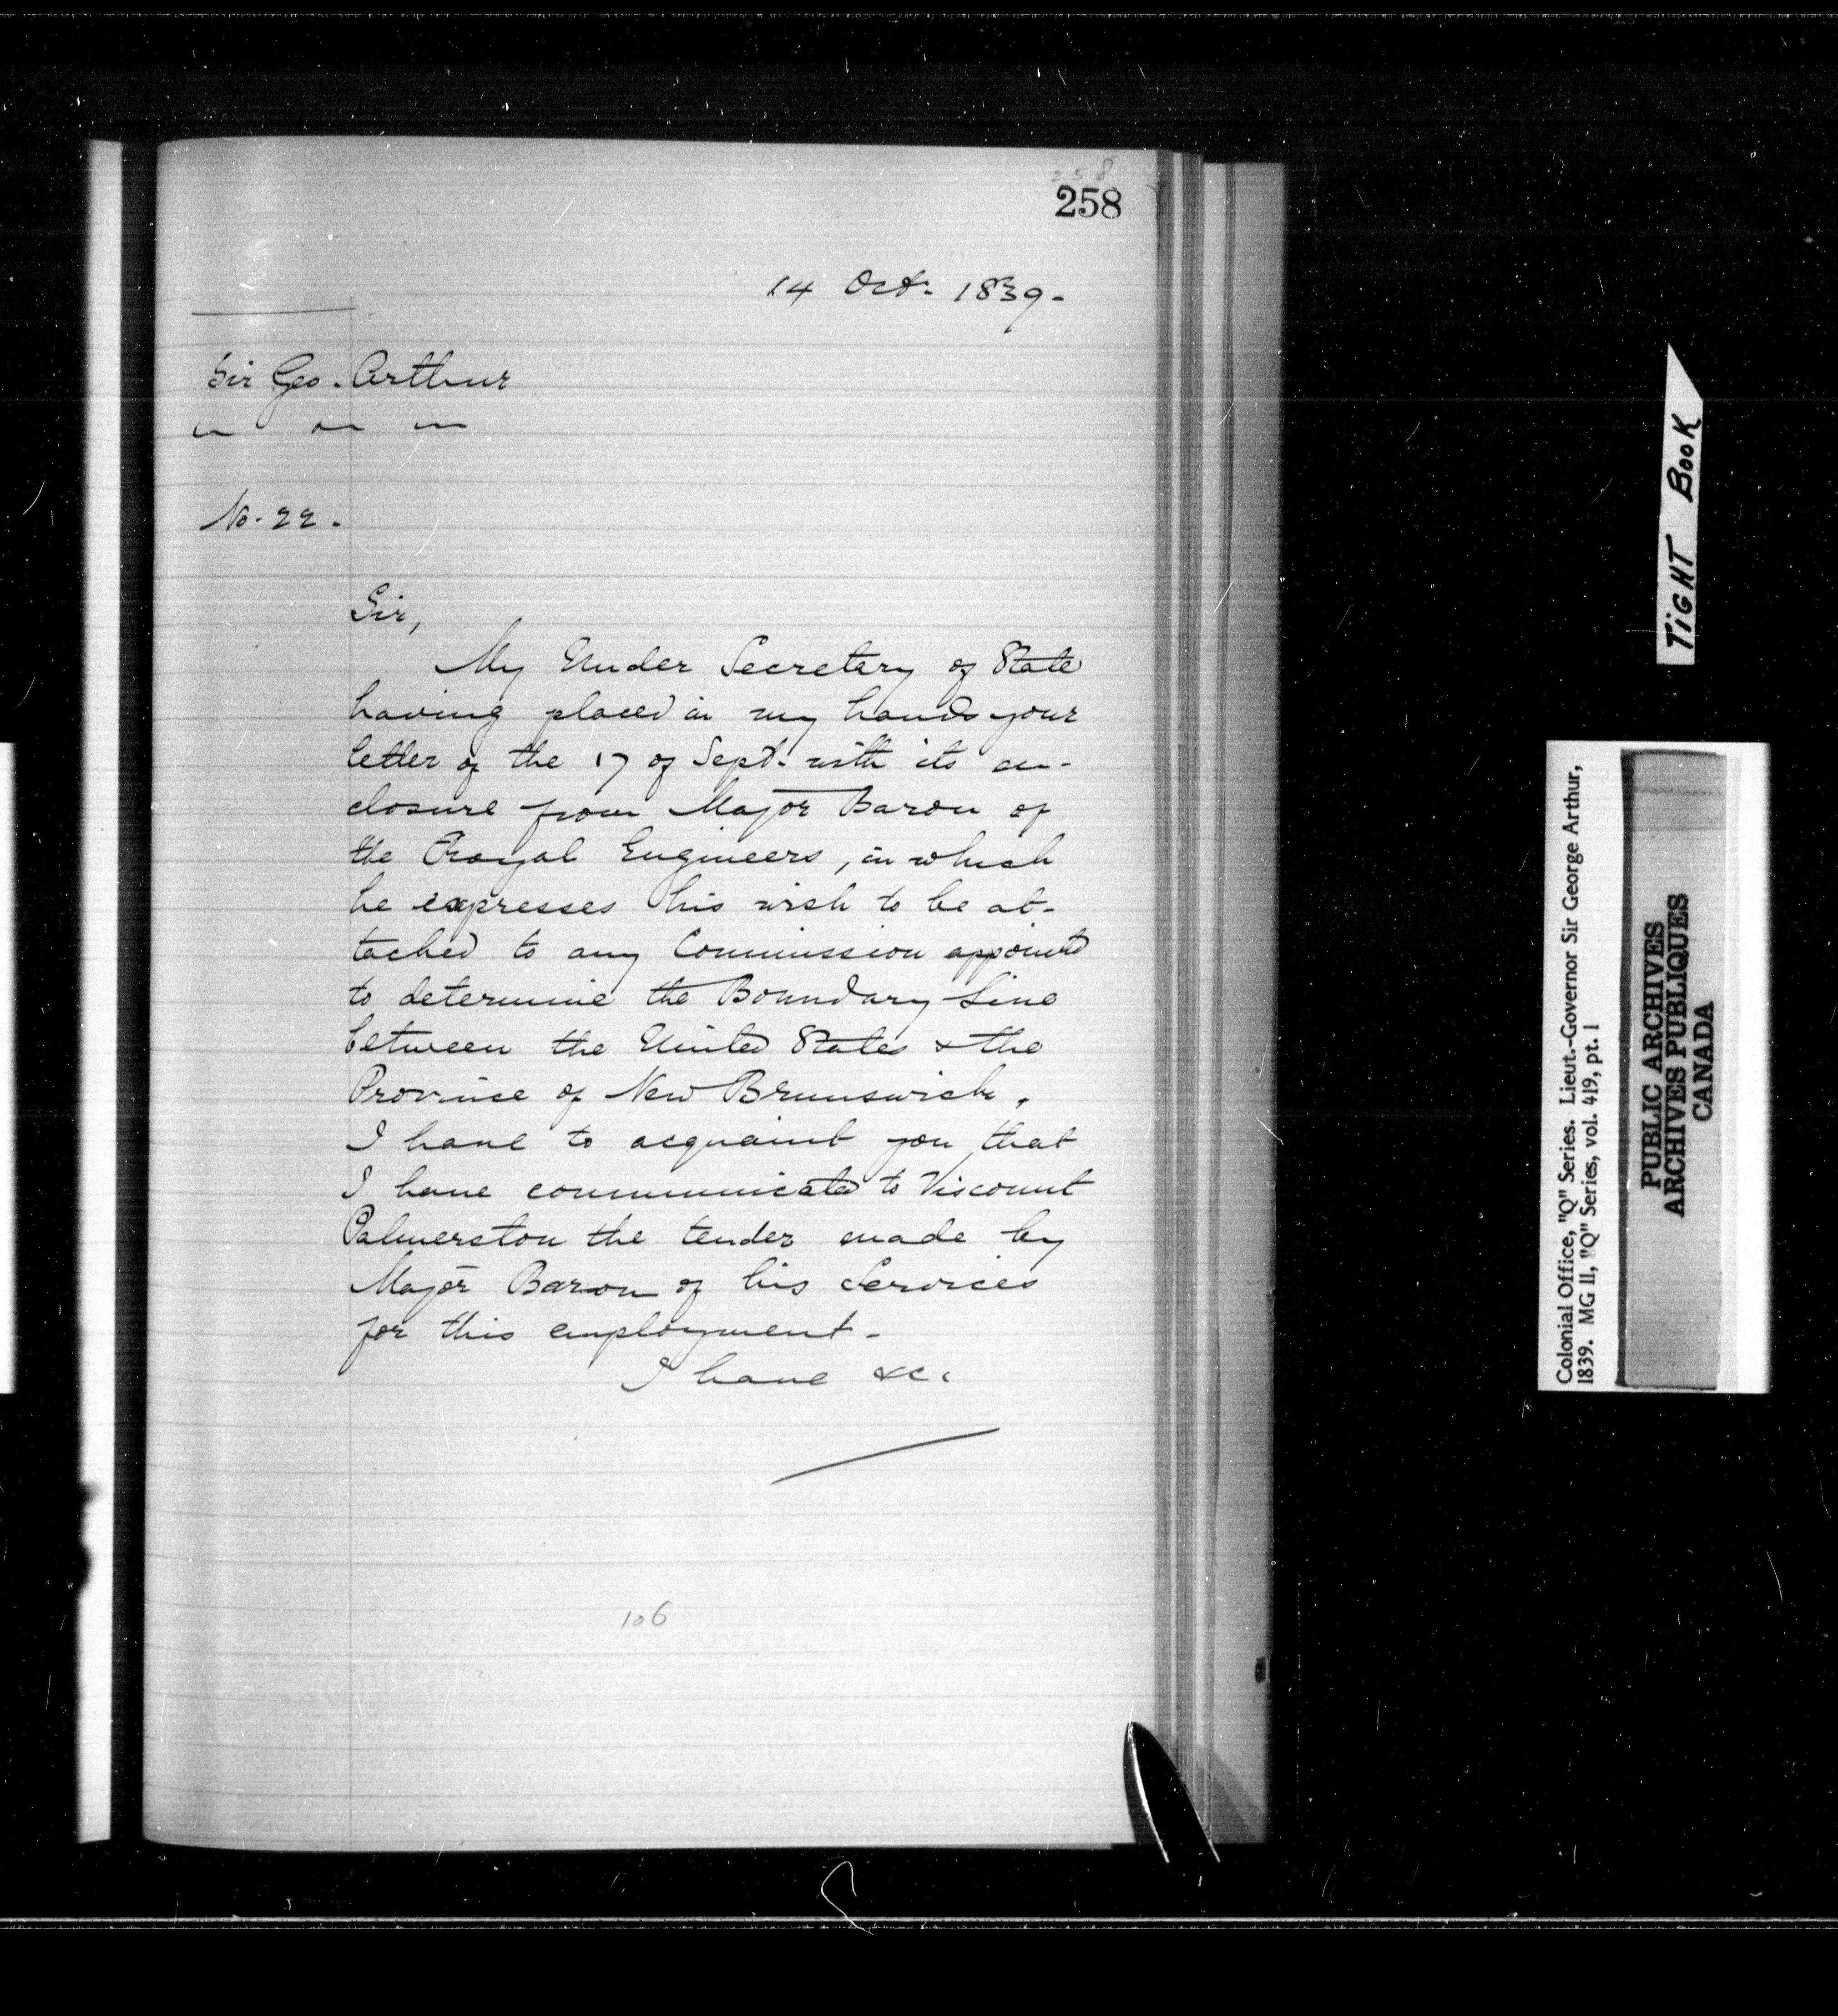 258
258
14 Oct. 1839.
Sir Geo. Arthur
No. 22.
Sir,
My Under Secretary of State
having placed in my hands your
letter of the 17 of Sept. with its en-
closure from Major Baron of
the Royal Engineers, in which
he expresses his wish to be at-
tached to any Commission appointed
to determine the Boundary Line
between the United States & the
Province of New Brunswick,
I have to acquaint you that
I have communicated to Viscount
Palmerston the tender made by
Major Baron of his Services
for this employment.
I have &c.
106
TIGHT BOOK
Colonial Office, "Q" Series. Lieut.-Governor Sir George Arthur,
1839. MG 11, "Q" Series, vol. 419, pt. 1
PUBLIC ARCHIVES
ARCHIVES PUBLIQUES
CANADA